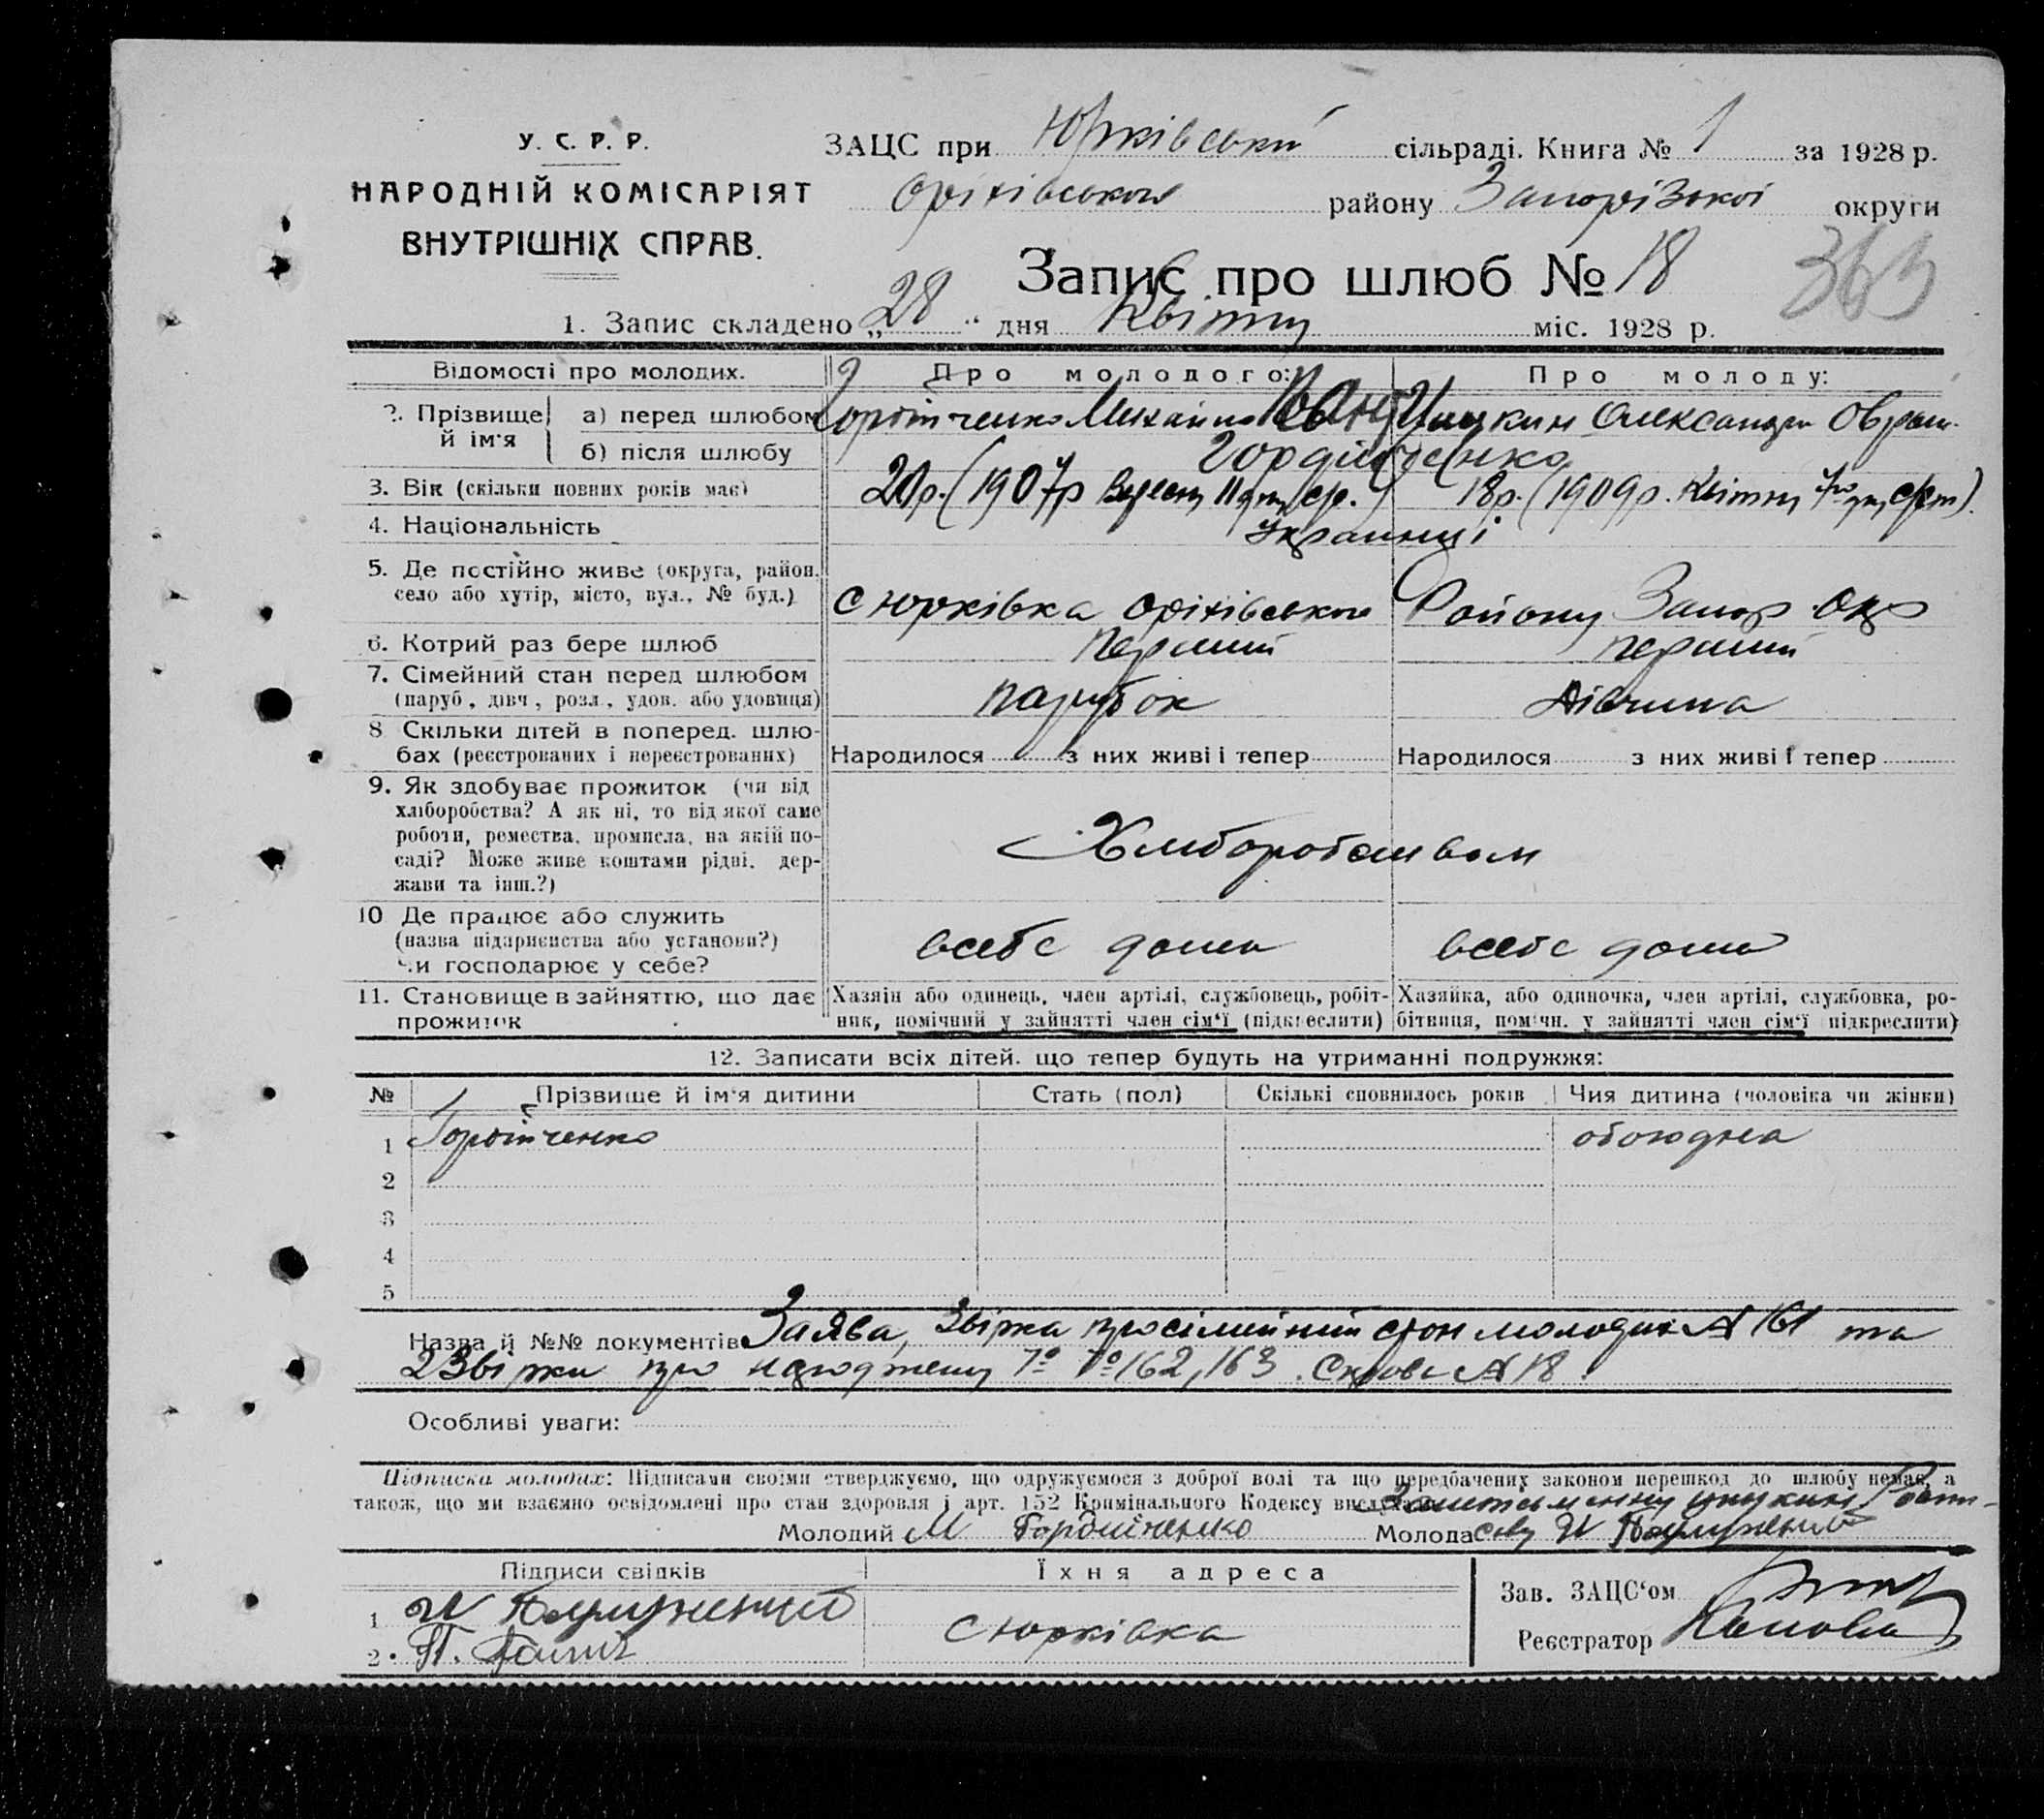 У. С. Р. Р.
НАРОДНІЙ КОМІСАРІЯТ
ВНУТРІШНІХ СПРАВ.
ЗАЦС при Юрківській сільраді. Книга № 1 за 1928 р.
Оріхівського району Запорізької округи
Запис про шлюб № 18
363
1. Запис складено „28“ дня Квітня міс. 1928 р.
Відомості про молодих. Про молодого: Про молоду:
2. Прізвище й ім'я а) перед шлюбом Гордійченко Михайло Олександра
б) після шлюбу Гордійченко
3. Вік (скільки повних років має) 20 р. (1907 р Вересня 11 дня ср.) 18 р. (1909 р. Квітня
4. Національність Українці
5. Де постійно живе (округа, район, село або хутір, місто, вул., № буд.) С Юрківка Оріхівського Району Запор. Окр
6. Котрий раз бере шлюб перший перший
7. Сімейний стан перед шлюбом (паруб, дівч, розл., удов. або удовиця) парубок дівчина
8 Скільки дітей в поперед. шлюбах (реєстрованих і нереєстрованих) Народилося з них живі і тепер Народилося з них живі і тепер
9. Як здобуває прожиток (чи від
хліборобства? А як ні, то від якої саме
роботи, ремества, промисла, на якій по-
саді? Може живе коштами рідні, дер-
жави та інш.?)
Хліборобством
10 Де працює або служить
(назва підприємства або установи?)
Чи господарює у себе?
всебе дома всебе дома
11. Становище в зайняттю, що дає прожиток
Хазяїн або одинець, член артілі, службовець, робіт-
ник, помічний у зайнятті член сім'ї (підкреслити)
Хазяйка, або одиночка, член артілі, службовка, ро-
бітниця, помічн. у зайнятті член сім'ї підкреслити)
12. Записати всіх дітей, що тепер будуть на утриманні подружжя:
№ Прізвище й ім'я дитини Стать (пол) Скількі сповнилось років Чия дитина (чоловіка чи жінки)
1 Гордійченко обоюдна
2
3
4
5
Назва й №№ документів Заява, Звірка про сімейний стан молодих № 161 та
2 Звірки про народження 162, 163. № 18
Особливі уваги:
Підписка молодих: Підписами своїми стверджуємо, що одружуємося з доброї волі та що передбачених законом перешкод до шлюбу немає, а
також, що ми взаємно освідомлені про стан здоровля і арт. 152 Кримінального Кодексу
Молодий М Гордийченко Молода
Підписи свідків Їхня адреса
1
2.
С Юрківка
Зав. ЗАЦС'ом
Реєстратор